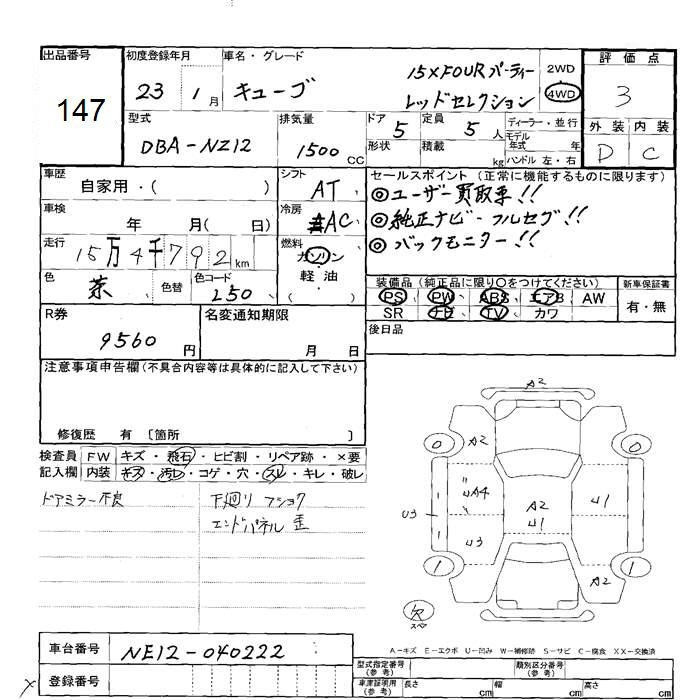 出品番号
147
初度登録年月
23 1月
車名・グレード
キューブ
15XFOURパーティー
レッドセレクション
2WD
4WD
評価点
3
外装 内装
D C
型式
DBA-NZ12
排気量
1500 CC
ドア
5
形状
定員
5 人
積載
kg
ディーラー・並行
モデル
年式 年
ハンドル 左・右
車歴
自家用・( )
シフト
AT
セールスポイント (正常に機能するものに限ります)
◎ユーザー買取車!!
◎純正ナビ・フルセグ!!
◎バックモニター!!
車検
年 月( 日)
冷房
AC
走行
15万4千792km
燃料
ガソリン
軽油
( )
色
茶
色替
色コード
250
装備品 (純正品に限り○をつけてください)
PS PW ABS エアB AW
SR ナビ TV カワ
新車保証書
有・無
後日品
R券
9560 円
名変通知期限
月 日
注意事項申告欄(不具合内容等は具体的に記入して下さい)
修復歴 有 〔箇所 〕
検査員
記入欄
FW キズ・飛石・ヒビ割・リペア跡・×要
内装 キズ・汚レ・コゲ・穴・スレ・キレ・破レ
ドアミラー不良
下廻り フショク
エンドパネル 歪
A2
0
0
A2
UA4
A2
U1
U1
U3
U3
1
1
A2
欠
スペア
A-キズ E-エクボ U-凹み W-補修跡 S-サビ C-腐食 XX-交換済
車台番号
NE12-040222
登録番号
型式指定番号
(参考)
類別区分番号
(参考)
車庫証明用
(参考)
長さ cm
幅 cm
高さ cm